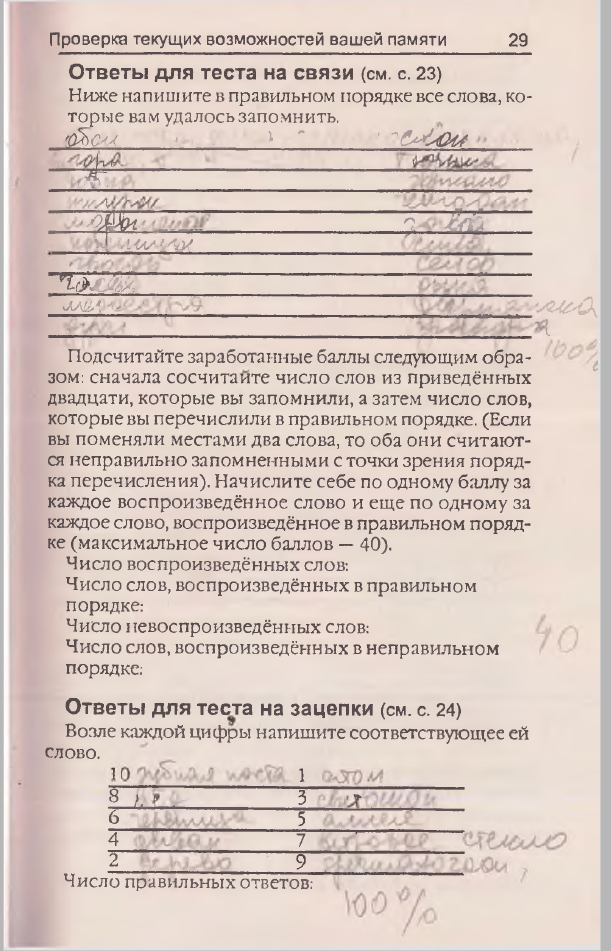 Проверка текущих возможностей вашей памяти 29
Ответы для теста на связи (см. с. 23)
Ниже напишите в правильном порядке все слова, ко-
торые вам удалось запомнить.
обои
гора
зеркало
чемодан
ножницы
гвозди сейф
медсестра
100%
Подсчитайте заработанные баллы следующим обра-
зом: сначала сосчитайте число слов из приведённых
двадцати, которые вы запомнили, а затем число слов,
которые вы перечислили в правильном порядке. (Если
вы поменяли местами два слова, то оба они считают-
ся неправильно запомненными с точки зрения поряд-
ка перечисления). Начислите себе по одному баллу за
каждое воспроизведённое слово и еще по одному за
каждое слово, воспроизведённое в правильном поряд-
ке (максимальное число баллов — 40).
Число воспроизведённых слов:
Число слов, воспроизведённых в правильном
порядке:
Число невоспроизведённых слов:
40
Число слов, воспроизведённых в неправильном
порядке:
Ответы для теста на зацепки (см. с. 24)
Возле каждой цифры напишите соответствующее ей
слово.
10 зубная паста 1 атом
8 3
6 черепица 5
4 диван 7 стекло
2 дерево 9
Число правильных ответов:
100%